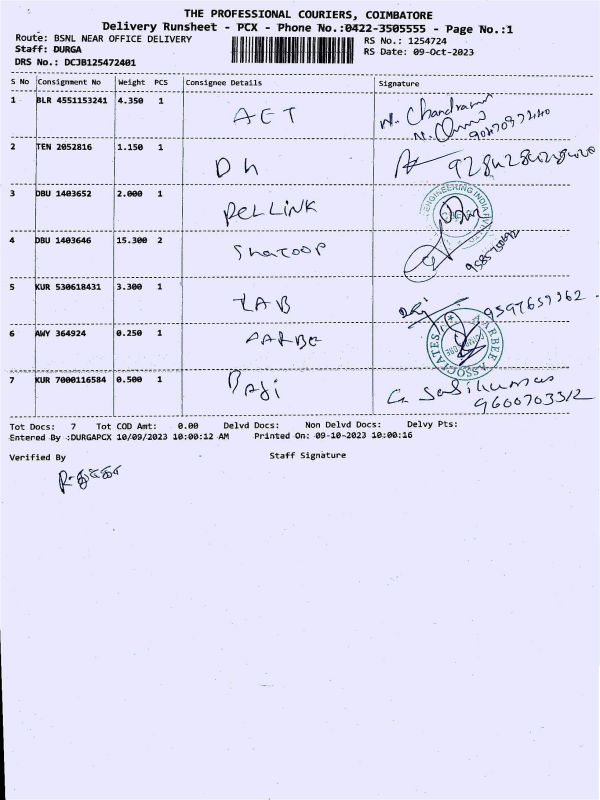 THE PROFESSIONAL COURIERS, COIMBATORE
Delivery Runsheet - PCX - Phone No.:0422-3505555 - Page No.:1
Route: BSNL NEAR OFFICE DELIVERY RS No.: 1254724
Staff: DURGA RS Date: 09-Oct-2023
DRS No.: DCJB125472401
S No Consignment No Weight PCS Consignee Details Signature
1 BLR 4551153241 4.350 1 AET N. Chandran
2 TEN 2052816 1.150 1 Dh
3 DBU 1403652 2.000 1 RELLINK
4 DBU 1403646 15.300 2
5 KUR 530618431 3.300 1 ZAB
6 AWY 364924 0.250 1 AARBE
7 KUR 7000116584 0.500 1 Baji
9600703312
Tot Docs: 7 Tot COD Amt: 0.00 Delvd Docs: Non Delvd Docs: Delvy Pts:
Entered By :DURGAPCX 10/09/2023 10:00:12 AM Printed On: 09-10-2023 10:00:16
Verified By Staff Signature